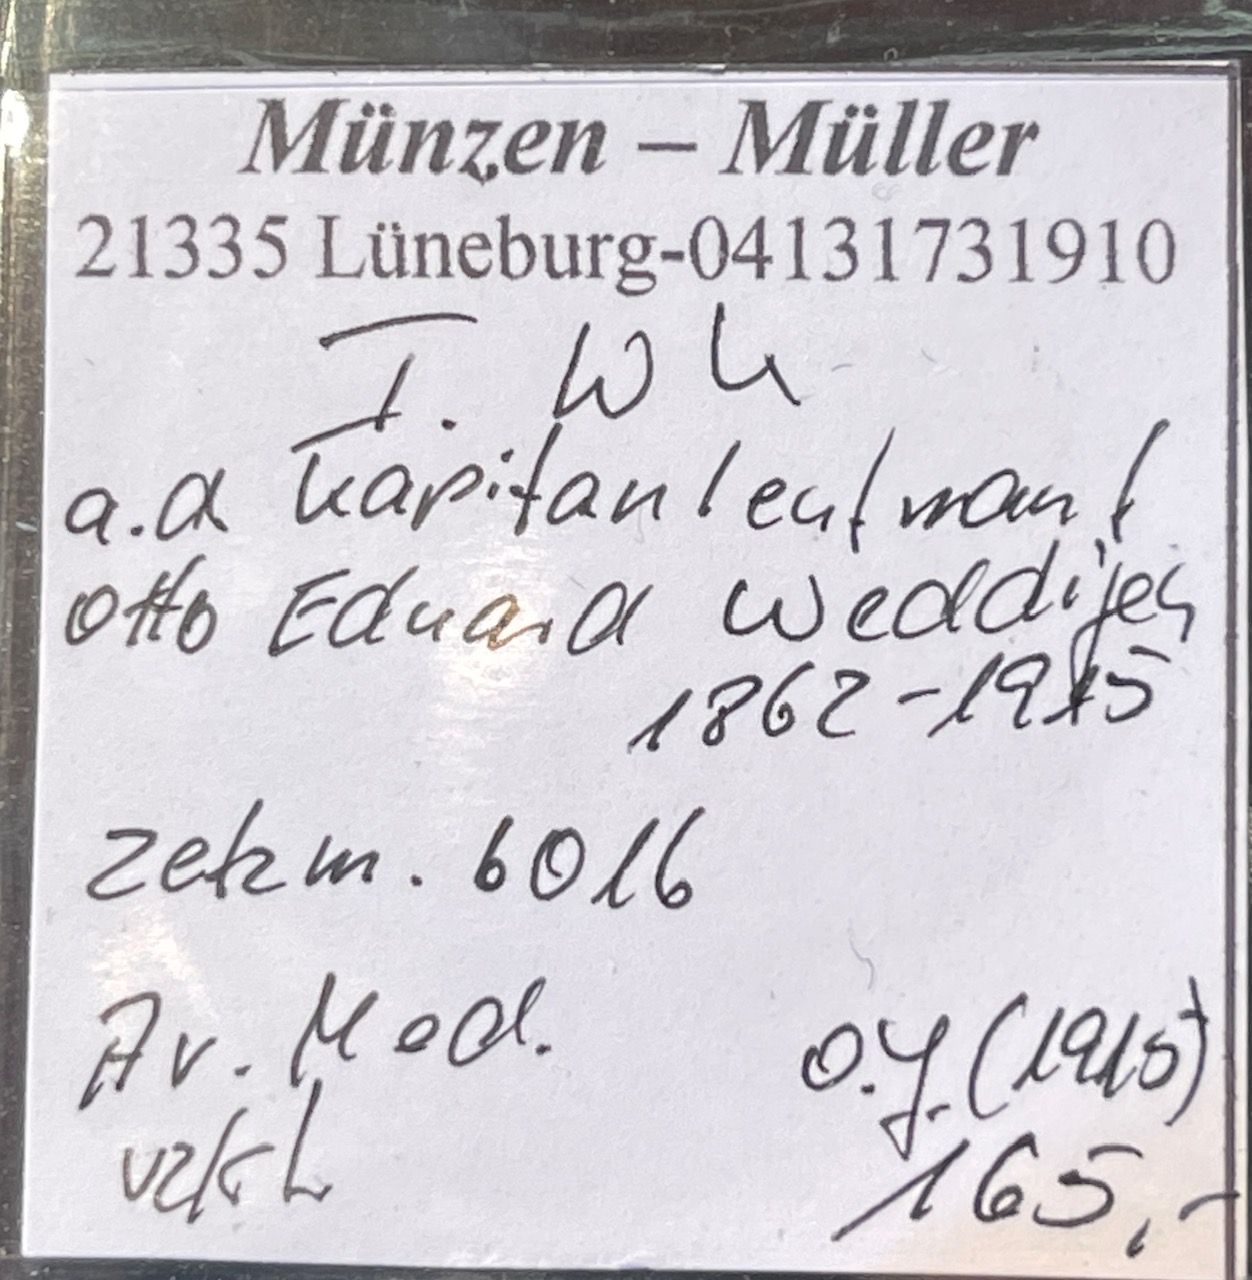 Münzen – Müller
21335 Lüneburg-04131731910
I. Wk
a.d Kapitanleutnant
Otto Eduard Weddigen
1862-1915
zetzm. 6016
Med.
o.J. (1915)
vz/st
165,-